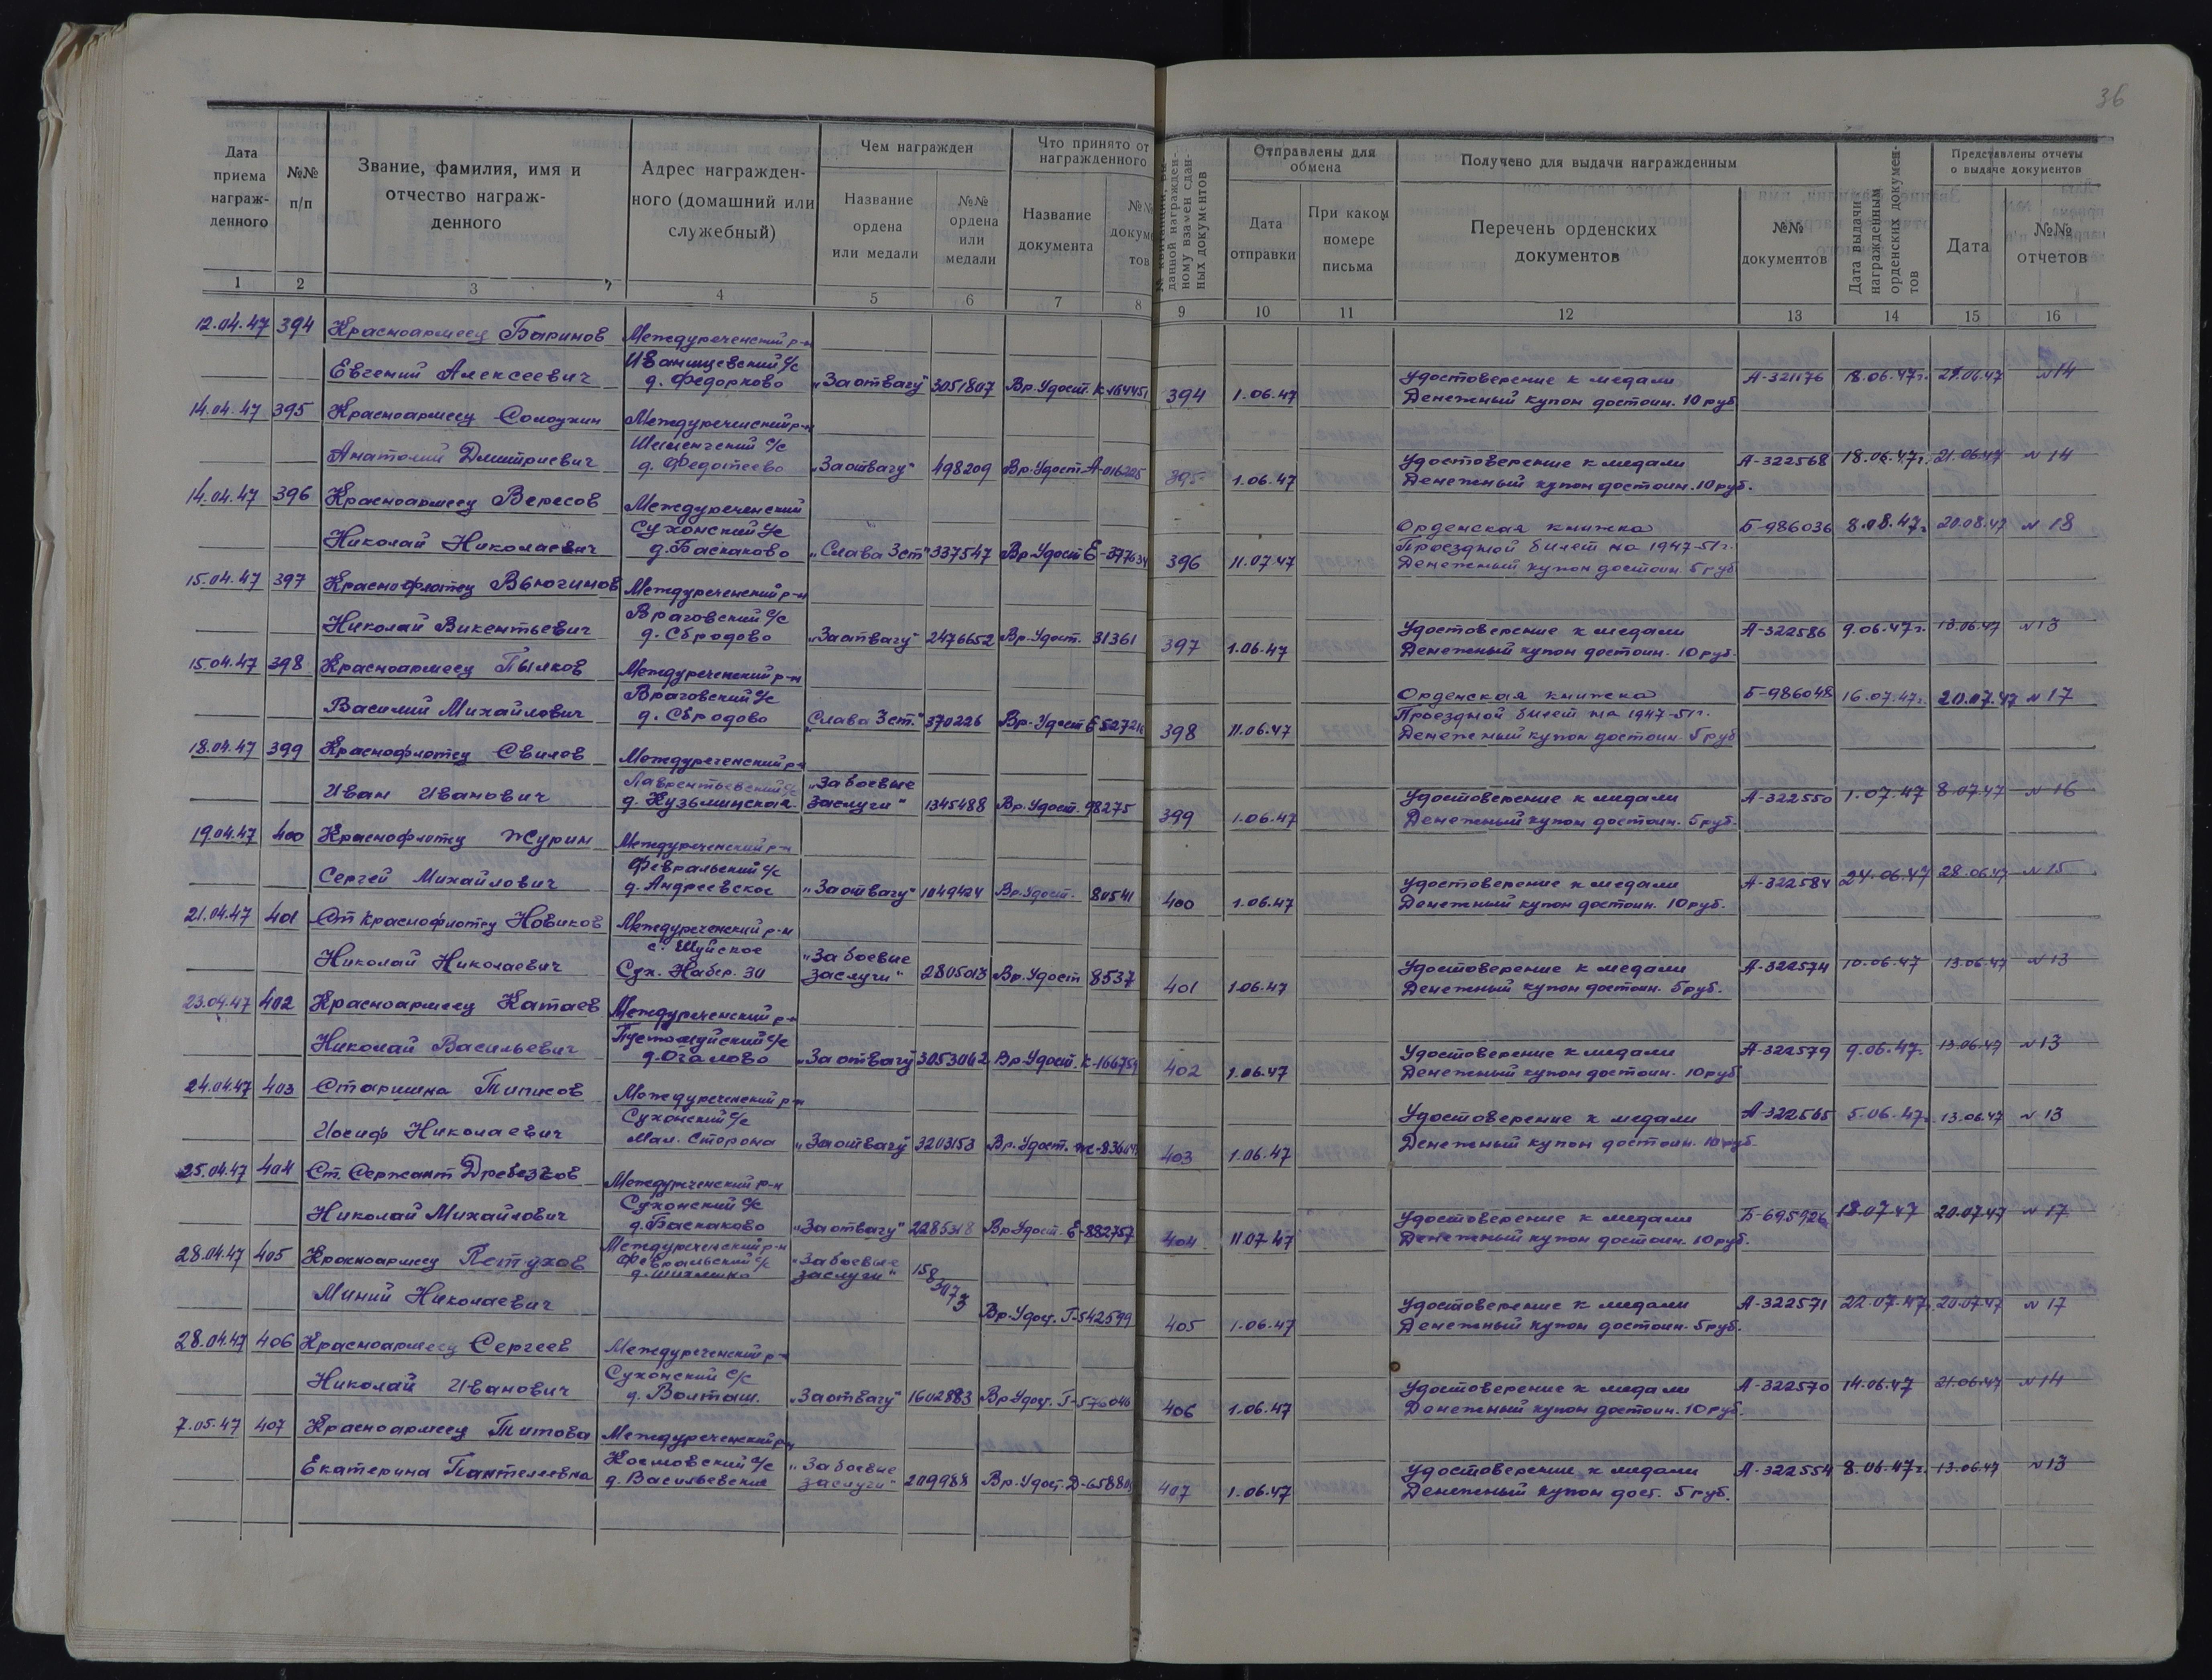 36
Дата приема награж- денного
№№ п/п
Звание, фамилия, имя и отчество награж- денного
Адрес награжден- ного (домашний или служебный)
Чем награжден
Название ордена или медали
№№ ордена или медали
Что принято от награжденного
Название документа
Отправлены для обмена
Дата отправки
При каком номере письма
Получено для выдачи награжденным
Перечень орденских документов
№№ документов
Дата выдачи награжденным орденских докумен- тов
Представлены отчеты о выдаче документов
Дата
№№ отчетов
1 2 3 4 5 6 7 8 9 10 11 12 13 14 15 16
12.04.47 394 Красноармеец Баринов Междуреченский р-н
Иванищевский с/с
Евгений Алексеевич д. Федорково „За отвагу" 3051807 Вр. Удост. К 394 1.06.47 Удостоверение к медали А-321176 18.06.47г. 21.06.47 №14
Денежный купон достоин. 10 руб
14.04.47 395 Красноармеец Солоухин Междуреченский р-н
Шейбухтовский с/с
Анатолий Дмитриевич д. Федотеево „За отвагу" 498209 Вр. Удост. А-016225 395 1.06.47 Удостоверение к медали А-322568 18.06.47г. 21.06.47 №14
Денежный купон достоин. 10 руб.
14.04.47 396 Красноармеец Вересов Междуреченский
Сухонский с/с Орденская книжка Б-986036 8.08.47г 20.08.47 №18
Николай Николаевич д. Баскаково „Слава 3 ст" 337547 Вр. Удост Е 396 11.07.47 Проездной билет на 1947-51г.
Денежный купон достоин. 5 руб
15.04.47 397 Краснофлотец Вьюгинов Междуреченский р-н
Враговский с/с
Николай Викентьевич д. Сбродово „За отвагу" 2476652 Вр. Удост. 31361 397 1.06.47 Удостоверение к медали А-322586 9.06.47г. 13.06.47 №13
Денежный купон достоин. 10 руб.
15.04.47 398 Красноармеец Пылков Междуреченский р-н
Враговский с/с Орденская книжка Б-986048 16.07.47г. 20.07.47 №17
Василий Михайлович д. Сбродово „Слава 3 ст." 370226 Вр. Удост Е 398 11.06.47 Проездной билет на 1947-51г.
Денежный купон достоин. 5 руб
18.04.47 399 Краснофлотец Свилов Междуреченский р-н
Лаврентьевский с/с „За боевые
Иван Иванович д. Кузьминская заслуги" 1345488 Вр. Удост. 98275 399 1.06.47 Удостоверение к медали А-322550 1.07.47 8.07.47 №16
Денежный купон достоин. 5 руб.
19.04.47 400 Краснофлотец Журин Междуреченский р-н
Февральский с/с
Сергей Михайлович д. Андреевское „За отвагу" 1049424 Вр. Удост. 80541 400 1.06.47 Удостоверение к медали А-322584 24.06.47 28.06.47 №15
Денежный купон достоин. 10 руб.
21.04.47 401 Ст Краснофлотец Новиков Междуреченский р-н
с. Шуйское „За боевые
Николай Николаевич Сух. Набер. 30 заслуги" 2805013 Вр. Удост 8537 401 1.06.47 Удостоверение к медали А-322574 10.06.47 13.06.47 №13
Денежный купон достоин. 5 руб.
23.04.47 402 Красноармеец Катаев Междуреченский р-н
с/с
Николай Васильевич д. Огалово „За отвагу" 3053062 Вр. Удост. К-166759 402 1.06.47 Удостоверение к медали А-322579 9.06.47. 13.06.47 №13
Денежный купон достоин. 10 руб
24.04.47 403 Старшина Типисов Междуреченский р-н
Сухонский с/с Удостоверение к медали А-322565 5.06.47г. 13.06.47 №13
Иосиф Николаевич Мал. Сторона „За отвагу" 3203153 Вр. Удост. 403 1.06.47 Денежный купон достоин. 10 руб.
25.04.47 404 Ст. Сержант Дребезгов Междуреченский р-н
Сухонский с/с
Николай Михайлович д. Баскаково „За отвагу" 2285318 Вр Удост. Е-882757 404 11.07.47 Удостоверение к медали Б-695926 18.07.47 20.07.47 №17
Денежный купон достоин. 10 руб.
28.04.47 405 Красноармеец Петухов Междуреченский р-н
Февральский с/с „За боевые заслуги" 1583073
Миний Николаевич Вр. Удост. Г-542599 405 1.06.47 Удостоверение к медали А-322571 22.07.47 20.07.47 №17
Денежный купон достоин. 5 руб.
28.04.47 406 Красноармеец Сергеев Междуреченский р-н
Сухонский с/с
Николай Иванович д. Волташ. „За отвагу" 1602883 Вр Удост. Г-576046 406 1.06.47 Удостоверение к медали А-322570 14.06.47 21.06.47 №14
Денежный купон достоин. 10 руб.
7.05.47 407 Красноармеец Титова Междуреченский р-н
Космовский с/с „За боевые
Екатерина Пантелеевна д. Васильевское заслуги" 209988 Вр. Удост. Д 407 1.06.47 Удостоверение к медали А-322554 8.06.47г. 13.06.47 №13
Денежный купон дост. 5 руб.